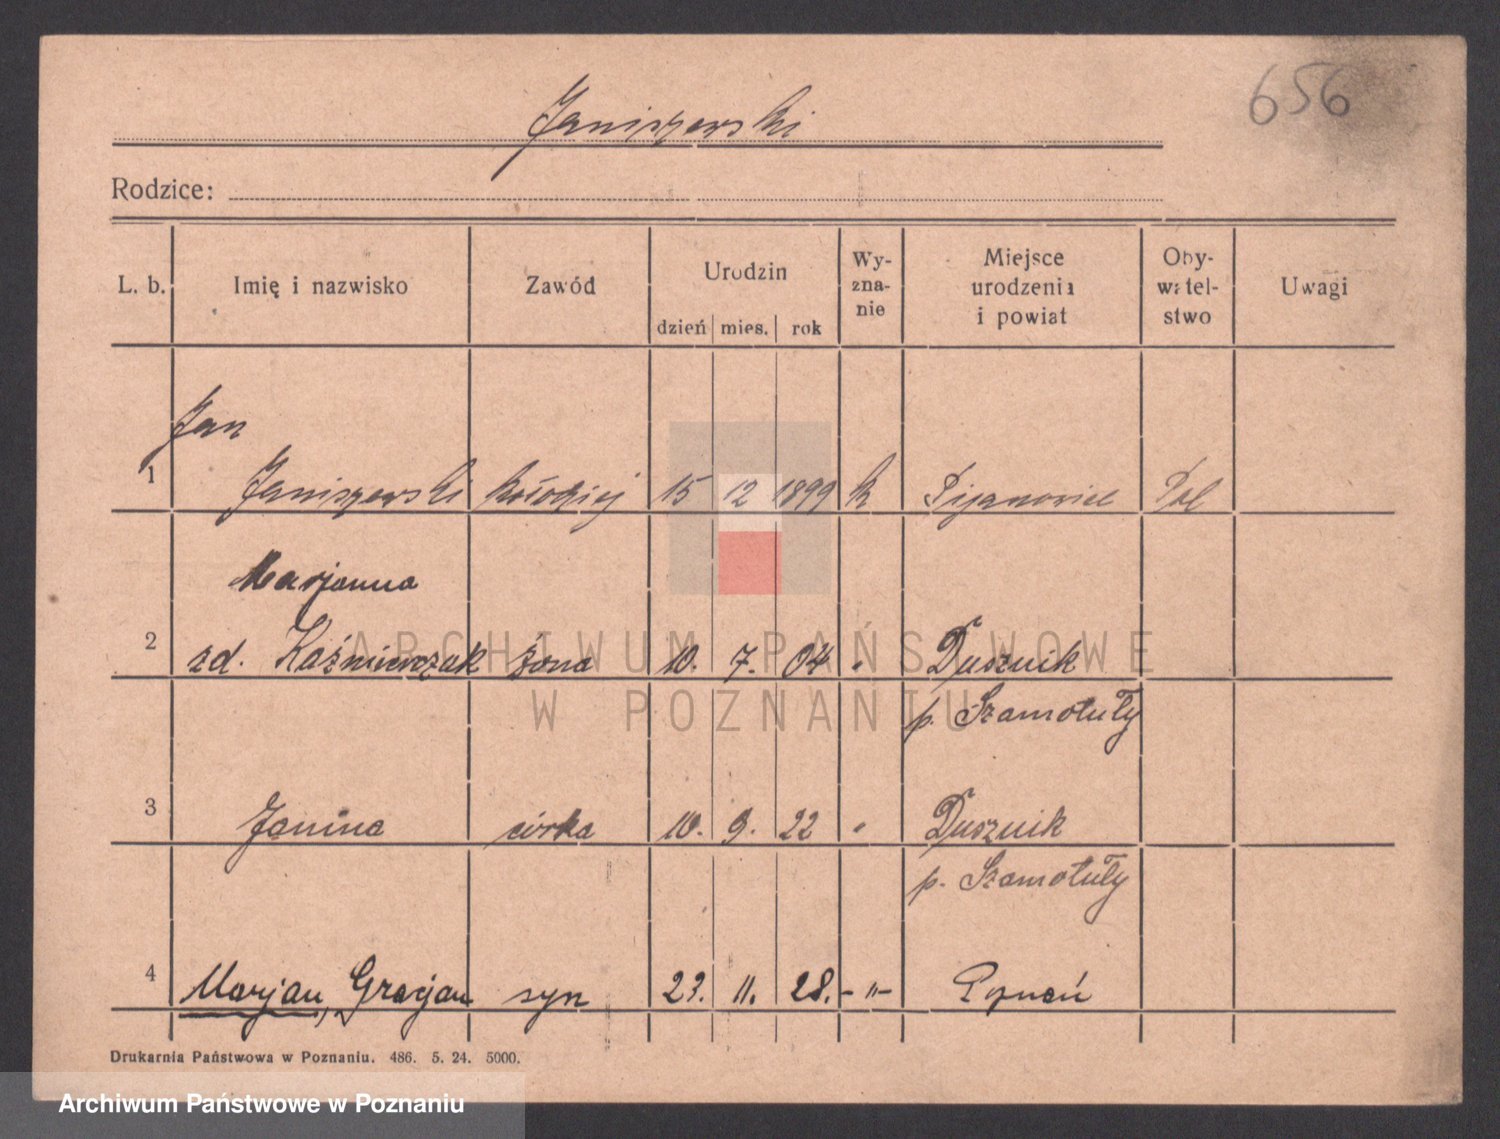 656
Janiszewski
Rodzice:
L. b. Imię i nazwisko Zawód Urodzin dzień mies. rok Wy-zna-nie Miejsce urodzenia i powiat Oby-watel-stwo Uwagi
Jan
1 Janiszewski kołodziej 15 12 1899 k Pijanowice Pol
Marjanna
2 zd. Kaźmierczak żona 10. 7. 04 " Dusznik
p. Szamotuły
3 Janina córka 10. 9. 22 " Dusznik
p. Szamotuły
4 Marjan, Gracjan syn 23. 11. 28. -"- Poznań
Drukarnia Państwowa w Poznaniu. 486. 5. 24. 5000.
ARCHIWUM PAŃSTWOWE
W POZNANIU
Archiwum Państwowe w Poznaniu